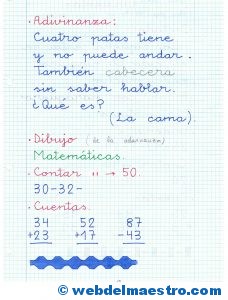 · Adivinanza:
Cuatro patas tiene
y no puede andar.
También cabecera
sin saber hablar.
¿Qué es?
(La cama).
· Dibujo (de la adivinanza)
Matemáticas.
· Contar " → 50.
30-32-
· Cuentas.
34 52 87
+23 +17 -43
© webdelmaestro.com